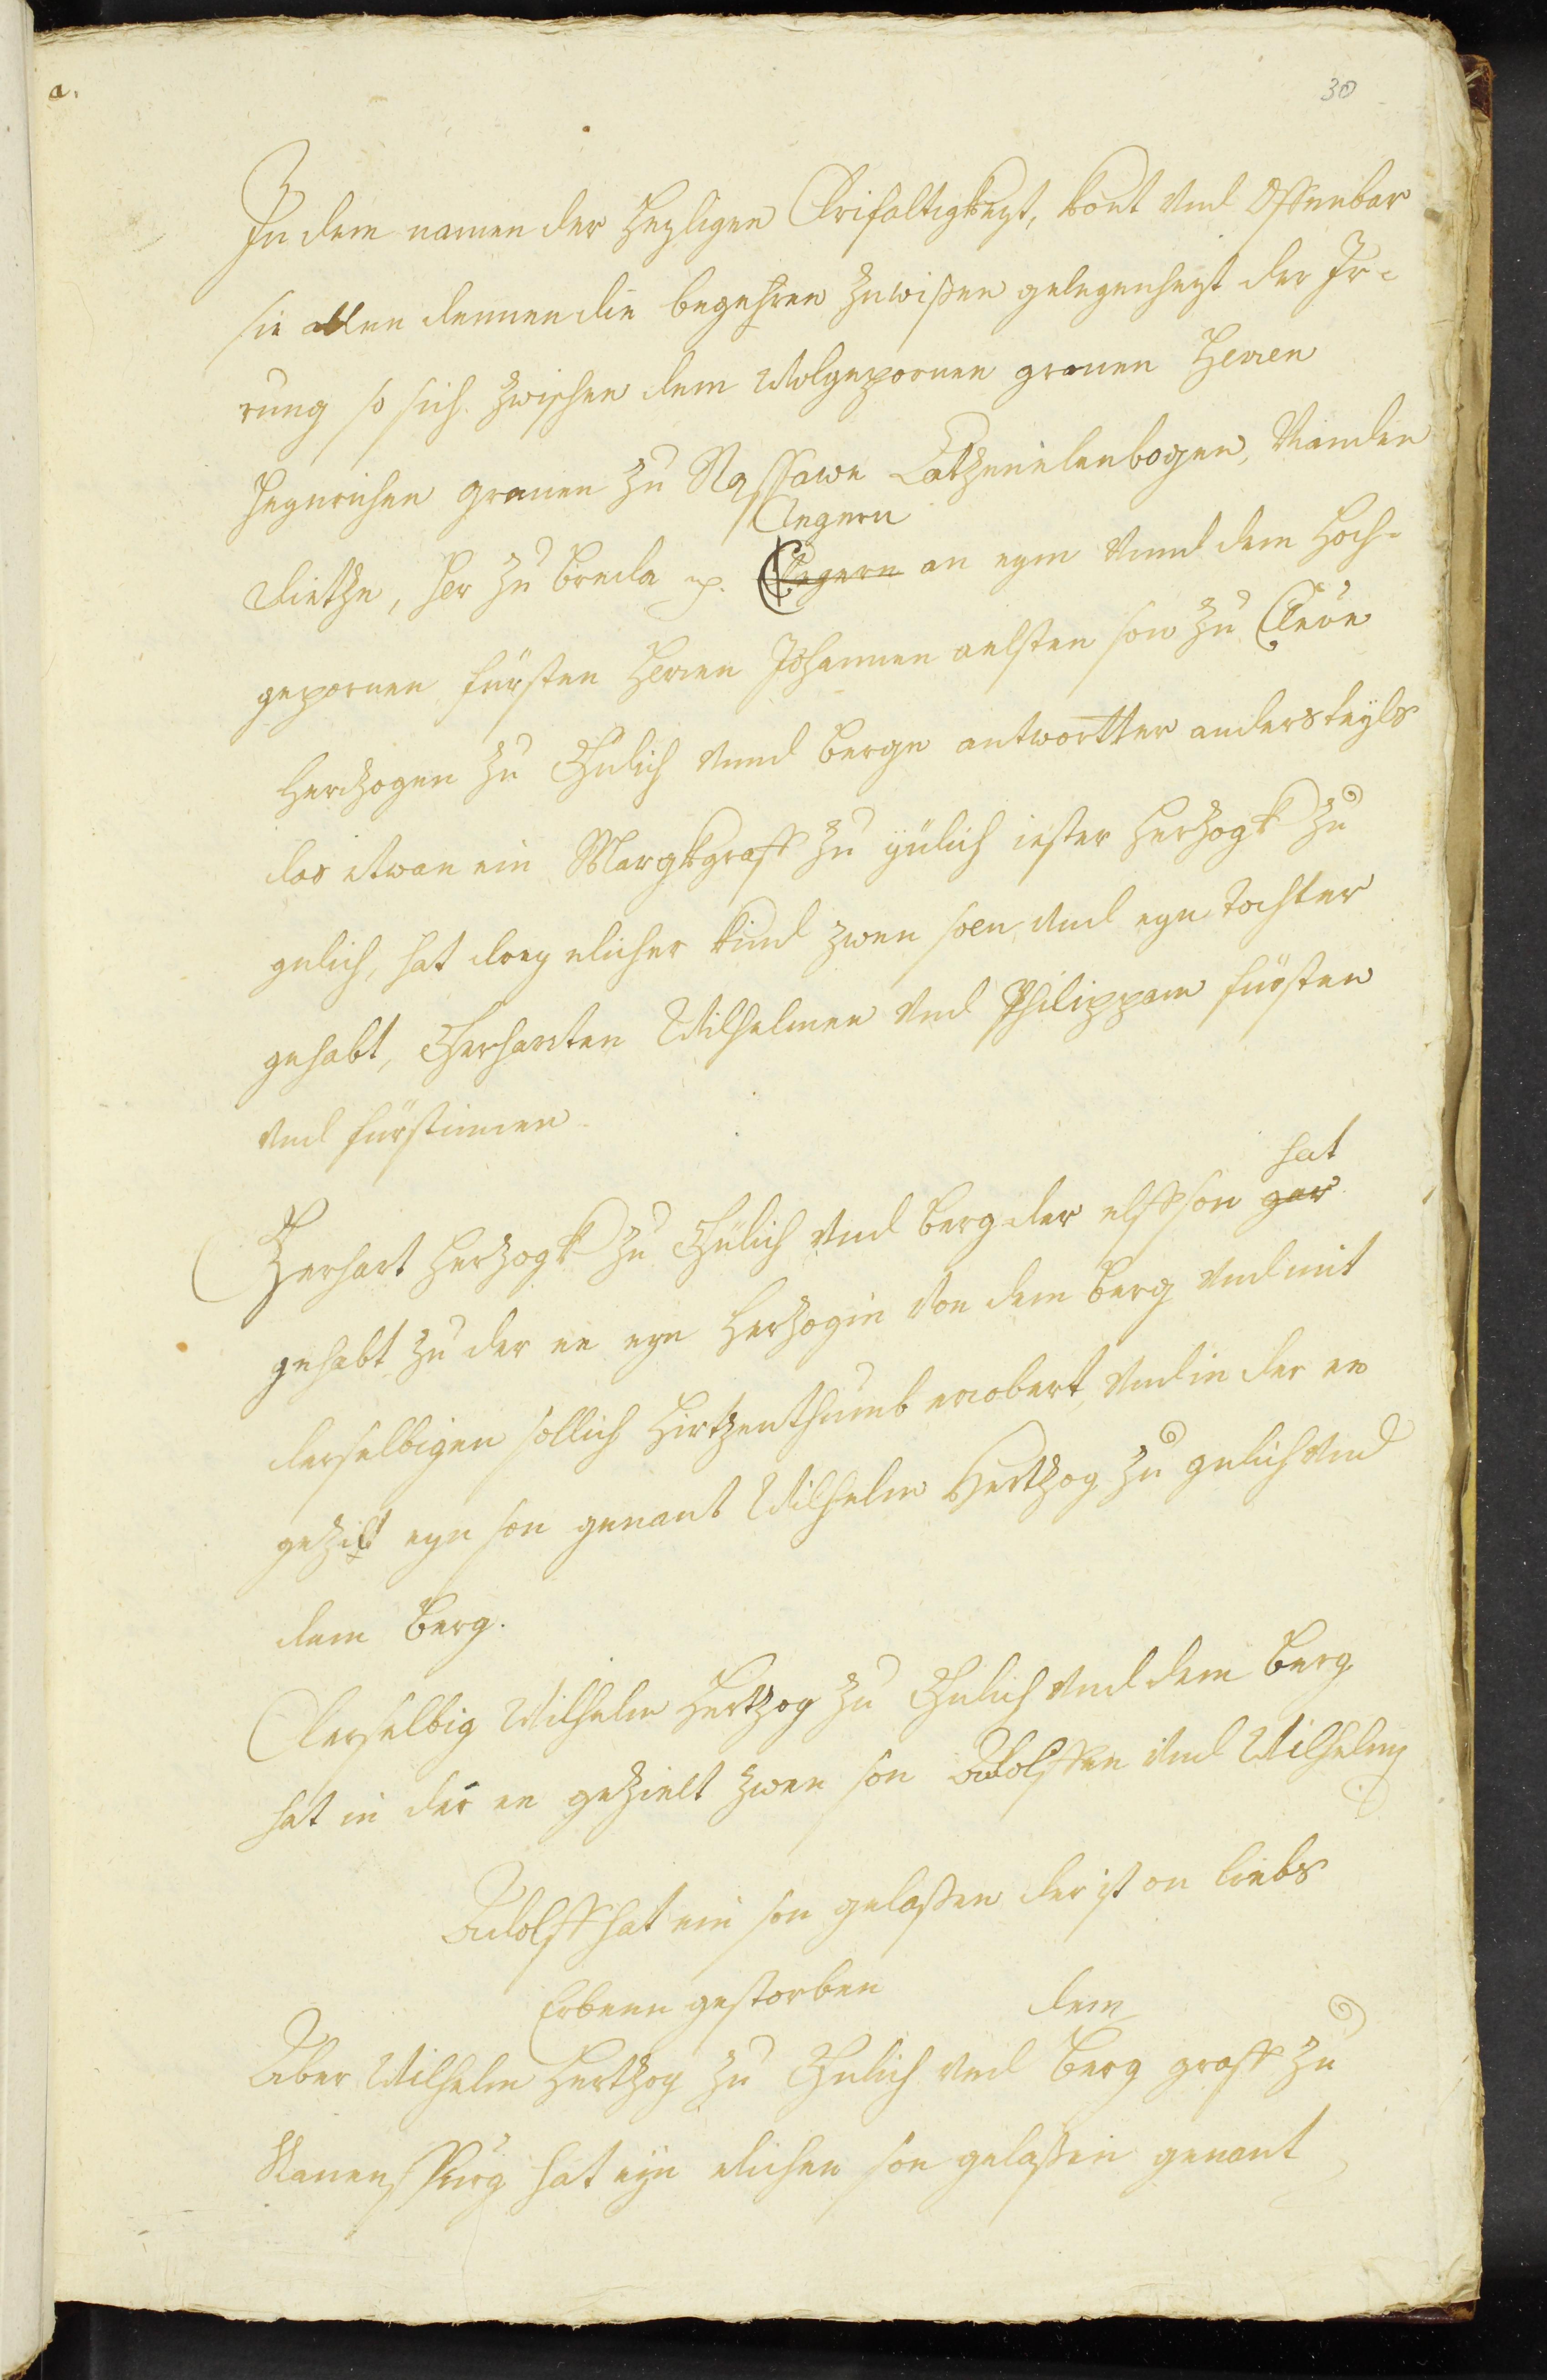 a.
30
In dem namen der Heyligen Drifaltigkeyt, kont vnd Offenbar
sie allen dennen die begehren zuwißen gelegenheyt der Jr-
rung so sich zwischen dem Wolgepornen grauen Herren
Heynrichen grauen zu Nassawe Catzenelenbogen, Vianden
Clegern
Dietze, Her zu Breda p. Clegern an eym vnnd dem Hoch-
gepornen fürsten Herren Johannen aelsten son zu Cleve
Herzogen zu Gulich vnnd Berge antwortter andersteyls
das etwan ein Margkgraff zu gülich iester Herzogk zu
gulich, hat drey elicher kind zwen soen vnd eyn tochter
gehabt, Gerharten Wilhelmen vnd Philippam fürsten
vnd fürstinnen
hat
Gerhart Herzogk zu Gülich vnd Berg der elst son gar
gehabt zu der ee eyn Herzogin von dem Berg vnd mit
derselbigen sollich Hirtzenthumb erobert, vnd in der ee
gezilt eyn son genant Wilhelm Hertzog zu gulich vnd
dem Berg.
Derselbig Wilhelm Hertzog zu Gulich vnd dem Berg
hat in der ee gezielt zwen son Adolffen vnd Wilhelm
Adolff hat ein son gelaßen der ist on liebs
Erbenn gestorben
dem
Aber Wilhelm Hertzog zu Gulich vnd Berg graff zu
Rauenspurg hat eyn elichen son gelaßen genant